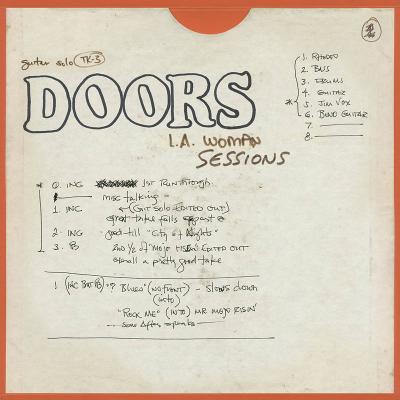 guitar solo TK-3
DOORS
L.A. WOMAN
SESSIONS
1. RHODES
2. BASS
3. DRUMS
4. GUITAR
* 5. JIM VOX
6. BEND GUITAR
7.
8.
* 0. INC 1ST RUNTHROUGH
misc talking
1. INC (GIT SOLO EDITED OUT)
great take falls apart @
2. INC good till "City of Nights"
3. 2ND 1/2 of "MOJO RISIN" EDITED OUT
overall a pretty good take
1 (INC BUT ) ? BLUES (NO FRONT) - SLOWS down
(INTO)
"ROCK ME" (INTO) MR MOJO RISIN'
some After speaks